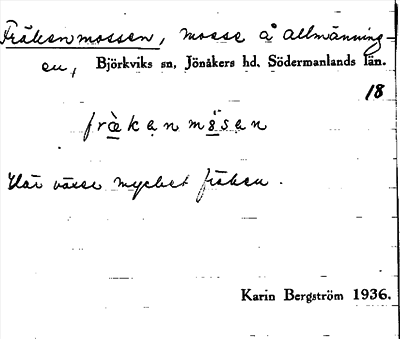 Fräkenmossen, mosse å allmänning-
en, Björkviks sn, Jönåkers hd, Södermanlands län.
18
frækenmosan
Här växer mycket fräken.
Karin Bergström 1936.